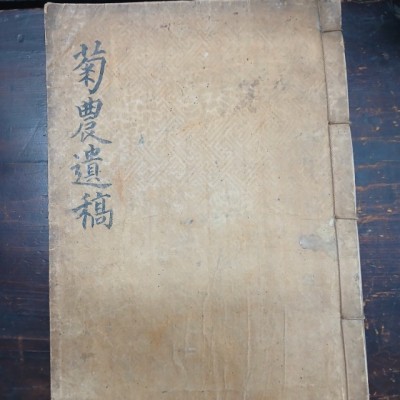 菊農遺稿